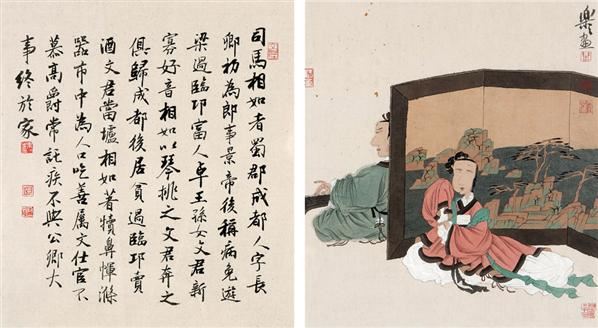 司馬相如者蜀郡成都人字長
卿初為郎事景帝後稱病免遊
梁過臨邛富人卓王孫女文君新
寡好音相如以琴挑之文君奔之
俱歸成都後居貧過臨邛賣
酒文君當壚相如著犢鼻褌滌
器市中為人口吃善屬文仕宦不
慕高爵常託疾不與公卿大
事終於家
樂畫